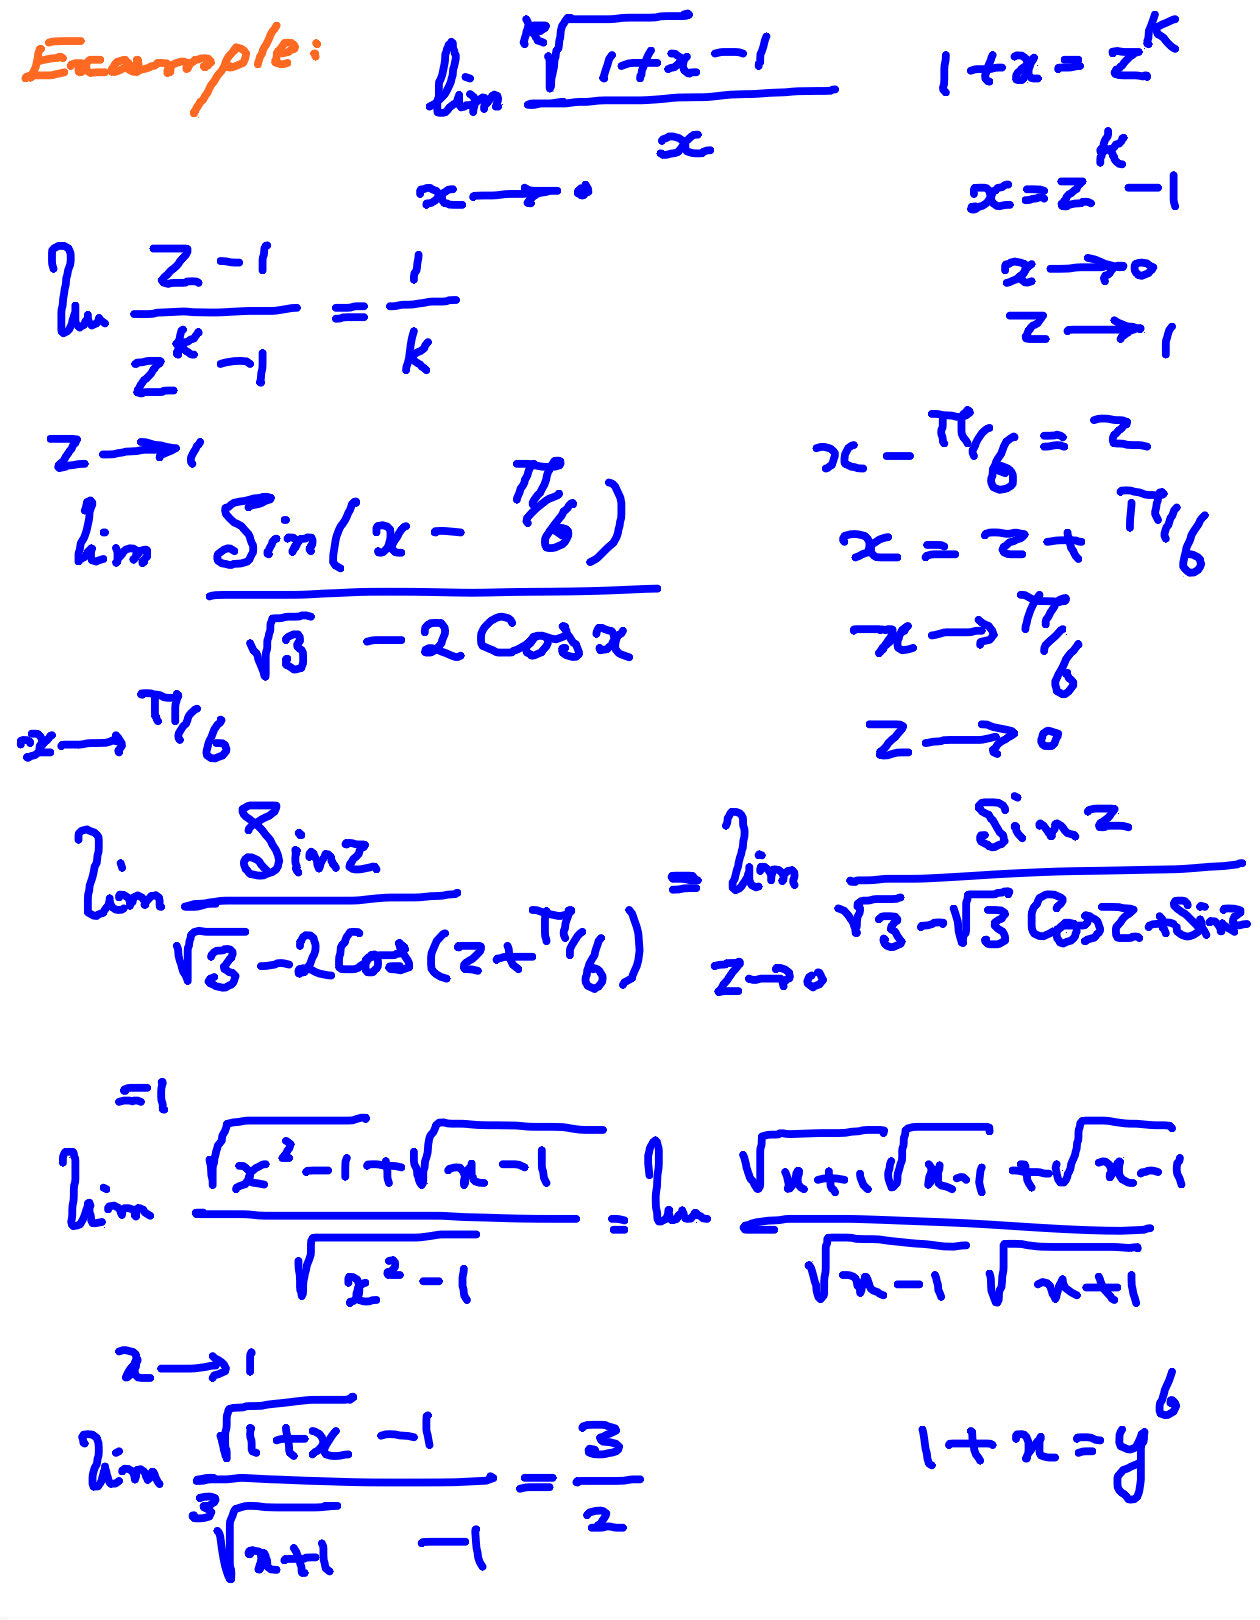 Example: lim_{x→0} (ᴷ√(1+x) - 1)/x    1+x = z^K
x = z^K - 1
x → 0
lim_{z→1} (z-1)/(z^K - 1) = 1/K    z → 1
x - π/6 = z
lim_{x→π/6} Sin(x - π/6)/(√3 - 2Cosx)    x = z + π/6
x → π/6
z → 0
lim Sinz/(√3 - 2Cos(z + π/6)) = lim_{z→0} Sinz/(√3 - √3 Cosz + Sinz)
= 1
lim_{x→1} (√(x² - 1) + √(x - 1))/√(x² - 1) = lim (√(x+1) √(x-1) + √(x-1))/(√(x-1) √(x+1))
lim (√(1+x) - 1)/(³√(x+1) - 1) = 3/2    1+x = y^6